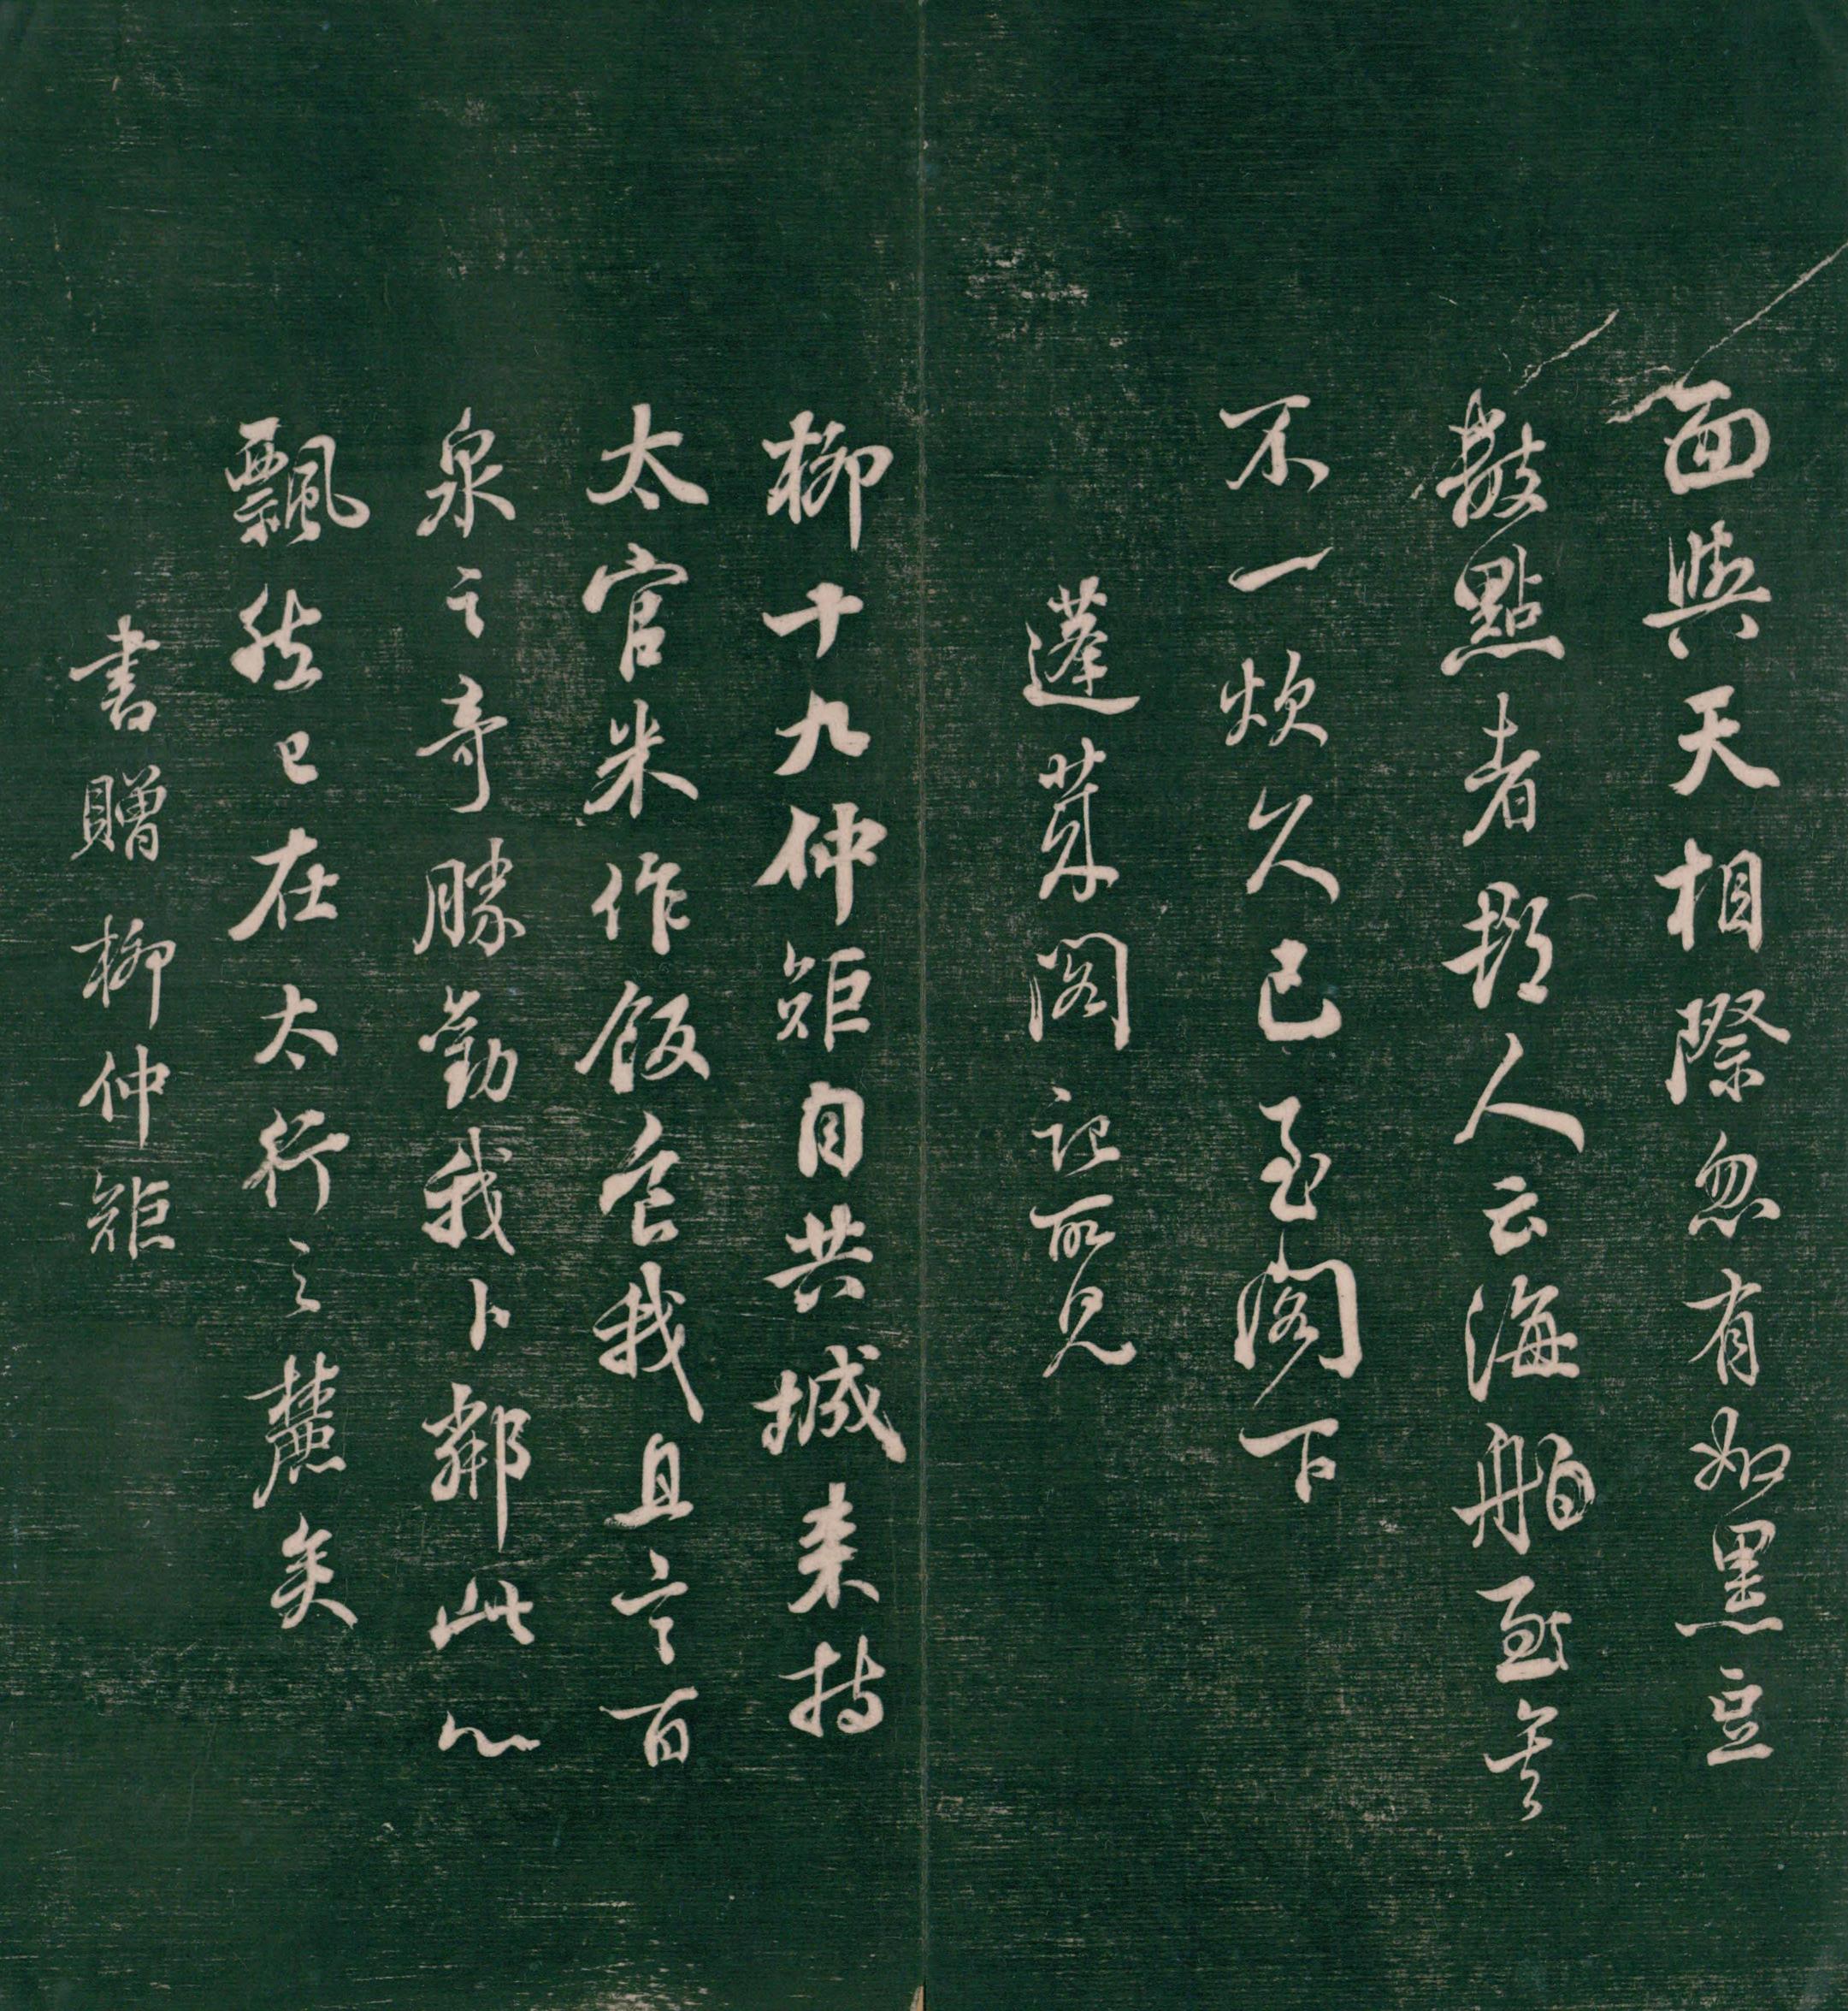 面與天相際忽有如黑豆
數點者郡人云海舶至矣
不一炊久已至閣下
蓬萊閣記所見
柳十九仲矩自共城來持
太官米作飯食我且言百
泉之奇勝勸我卜鄰此心
飄然已在太行之麓矣
書贈柳仲矩